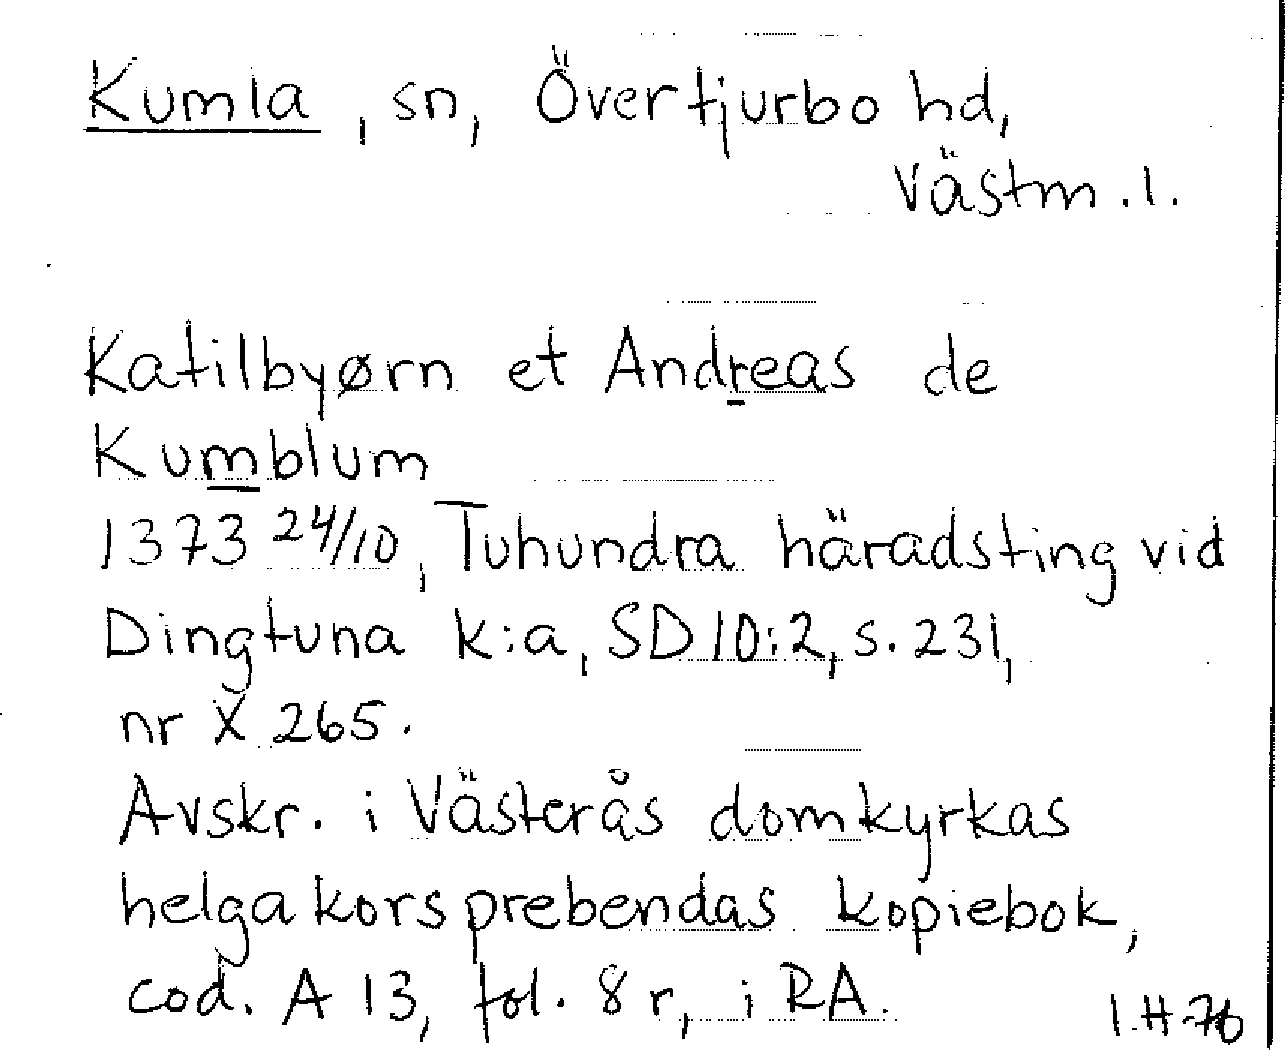 Kumla, sn, Övertjurbo hd,
Västm.l.
Katilbyørn et Andreas de
Kumblum
1373 24/10, Tuhundra häradsting vid
Dingtuna k:a, SD 10:2, s. 231,
nr X 265.
Avskr. i Västerås domkyrkas
helgakorsprebendas kopiebok,
cod. A 13, fol. 8 r, i RA.
I.H-76